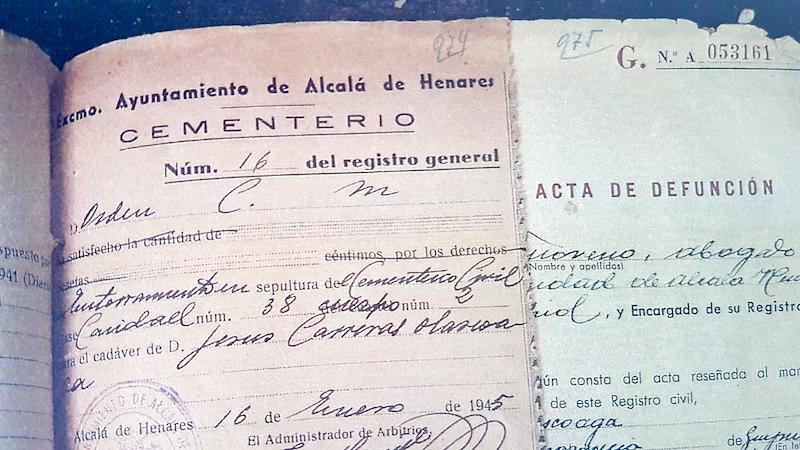 974
Excmo. Ayuntamiento de Alcalá de Henares
CEMENTERIO
Núm. 16 del registro general
D. Orden C. M
satisfecho la cantidad de
céntimos, por los derechos
Enterramiento en sepultura del Cementerio Civil
Caridad núm. 38 cuerpo núm. 2
el cadáver de D. Jesus Carreras Olascoa
ga
Alcalá de Henares 16 de Enero de 1945
El Administrador de Arbitrios,
941
975
G. N.º A 053161
ACTA DE DEFUNCIÓN
moreno, abogado
(Nombre y apellidos)
de Alcala
, y Encargado de su Registro
consta del acta reseñada al
de este Registro civil,
scoaga
de